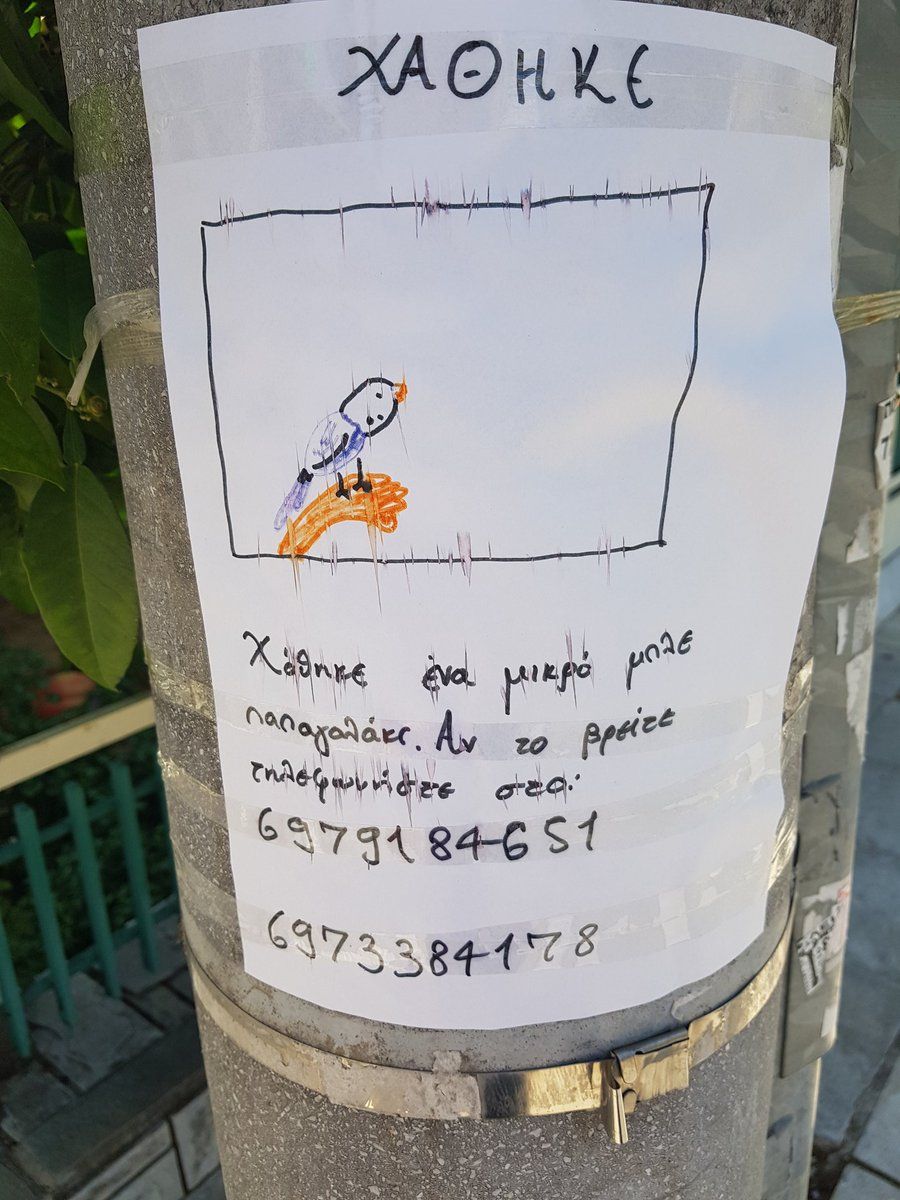 ΧΑΘΗΚΕ
Χάθηκε ένα μικρό μπλε
παπαγαλάκι. Αν το βρείτε
τηλεφωνήστε στο:
6979184651
6973384178